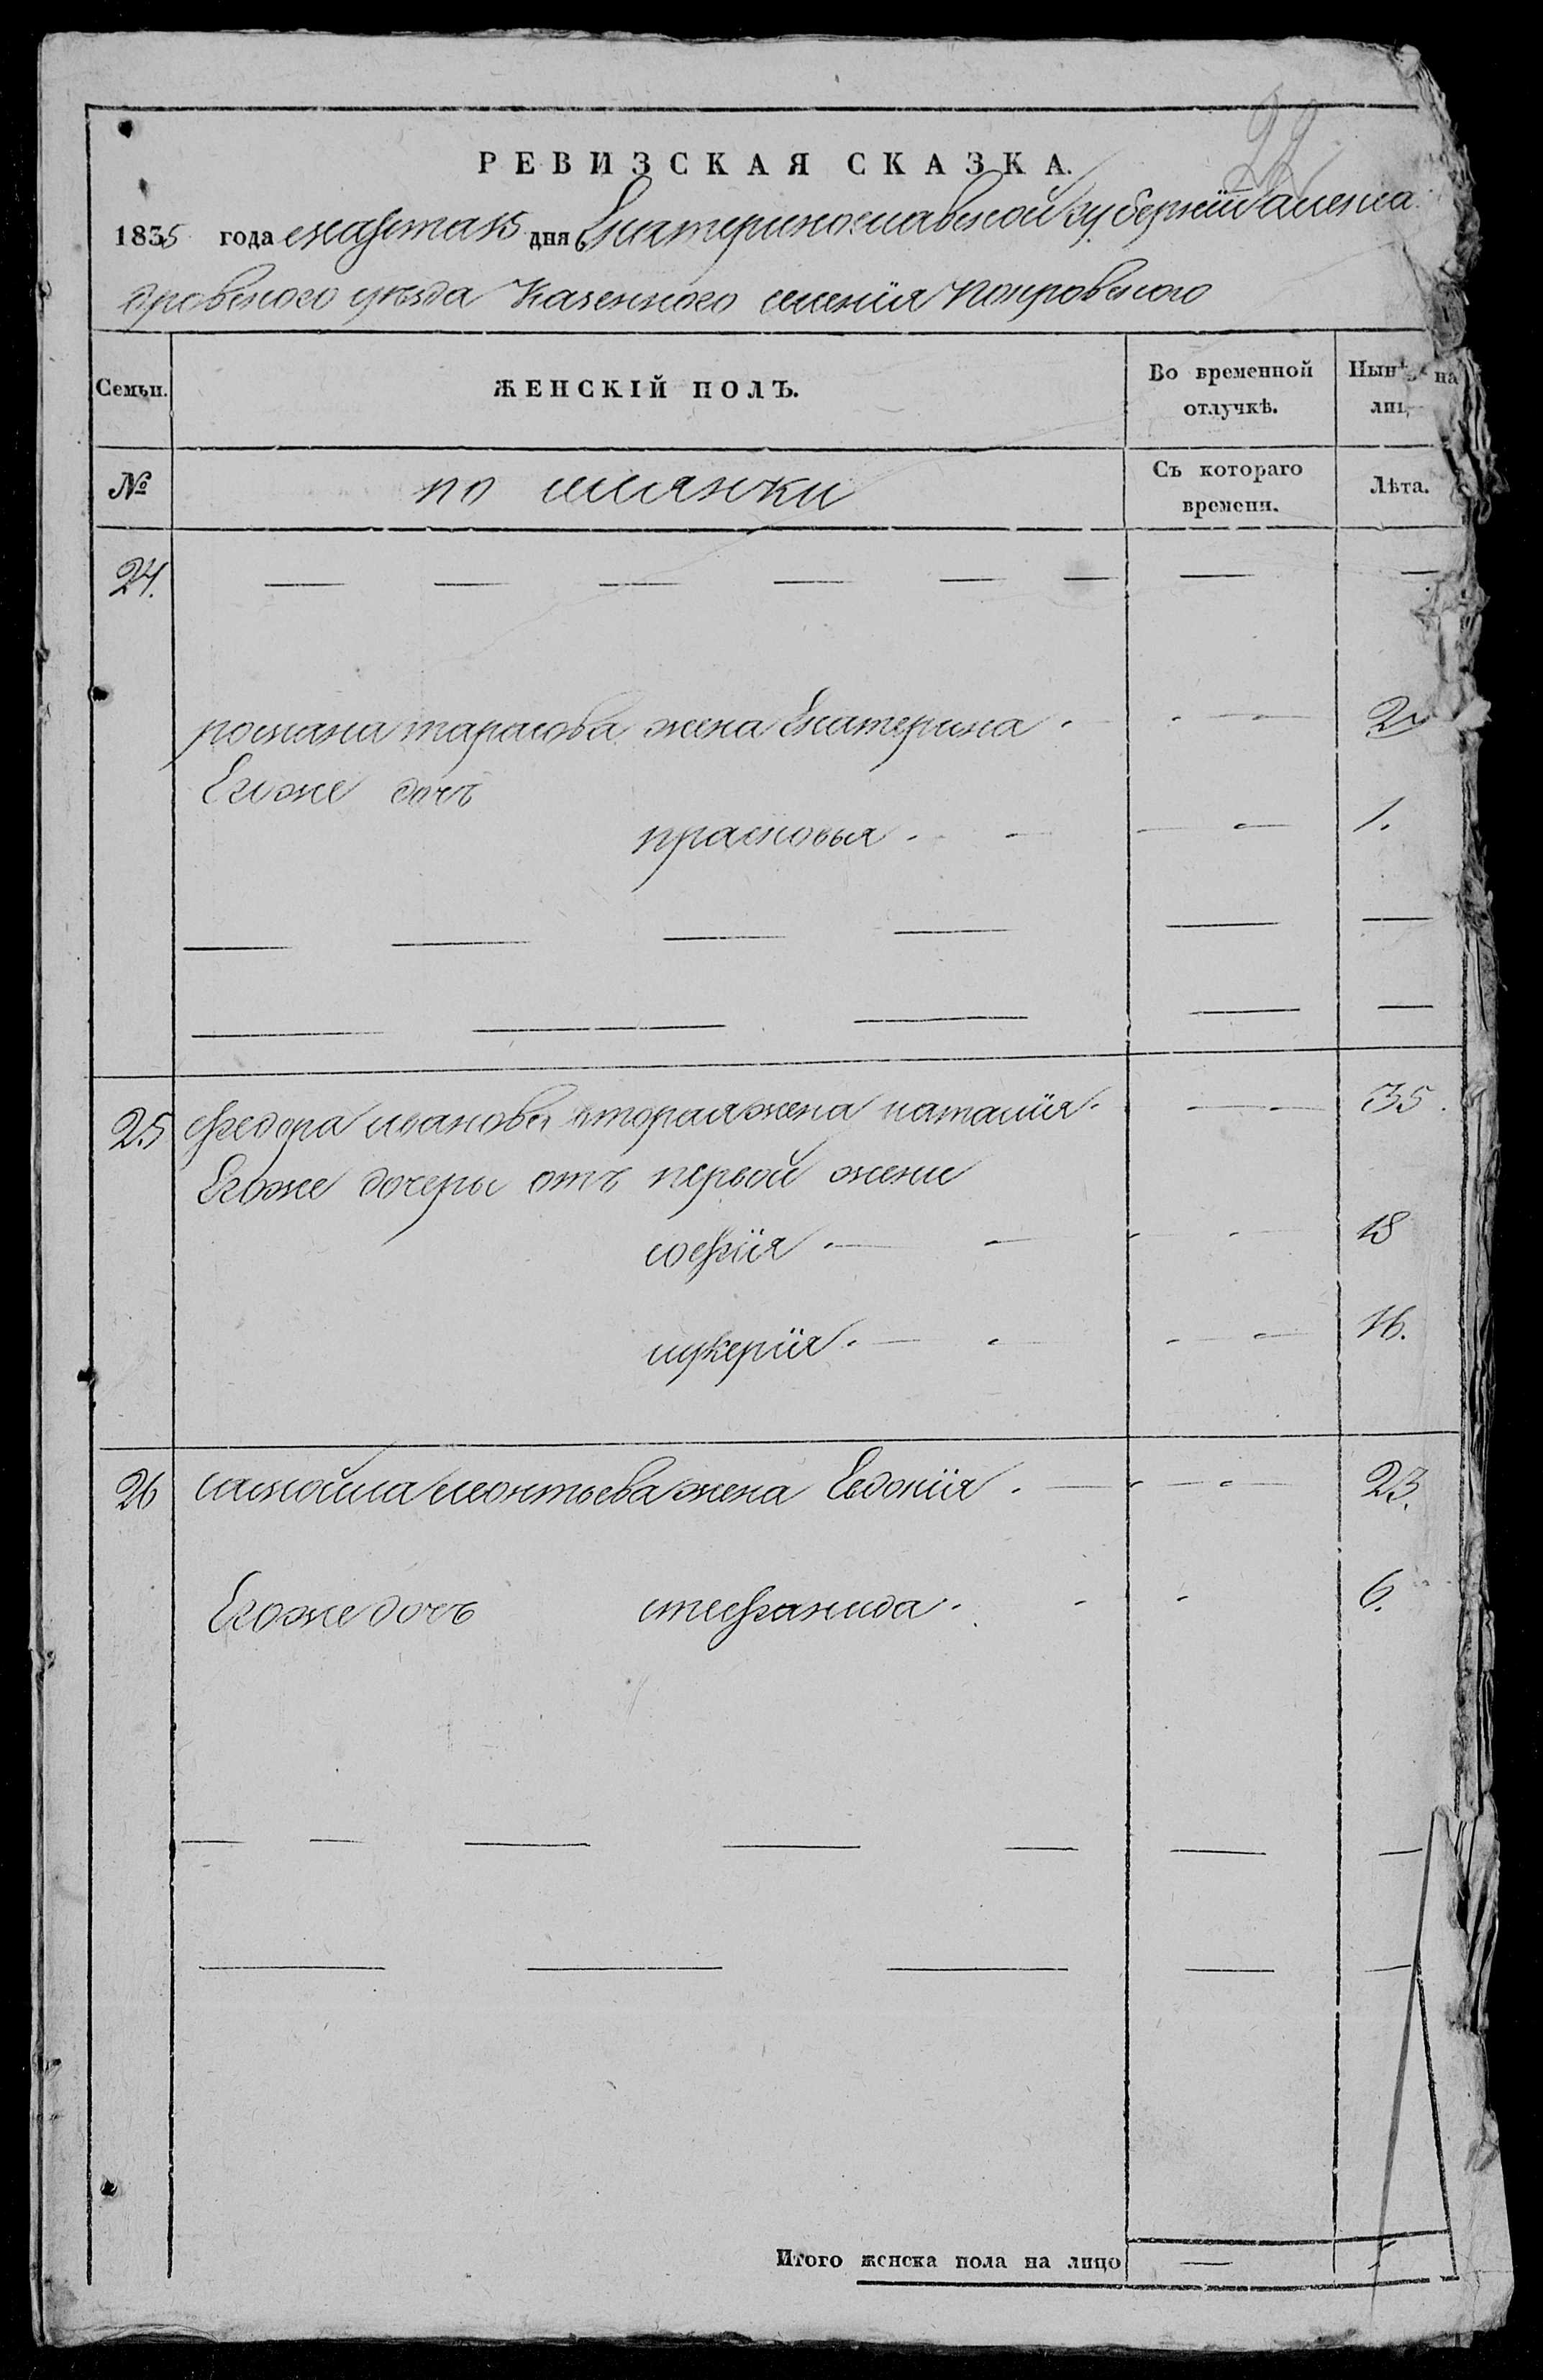 РЕВИЗСКАЯ СКАЗКА.
1835 года марта 15 дня Екатеринославской губернии алекса
дровского уезда Казенного селения покровского
Семьи. ЖЕНСКІЙ ПОЛЪ. Во временной отлучкѣ. Нынѣ на лиц
№ по селянки Съ котораго времени. Лѣта.
24.
романа тарасова жена Екатерина 2
Егоже дочь
прасковья 1.
25 федора иванова вторая жена наталїя 35
Егоже дочеры отъ первой жены
софїя 18
лукерїя 16.
26 самойла леонтьева жена Евдокїя 23.
Егоже дочь стефанида 6.
Итого женска пола на лицо